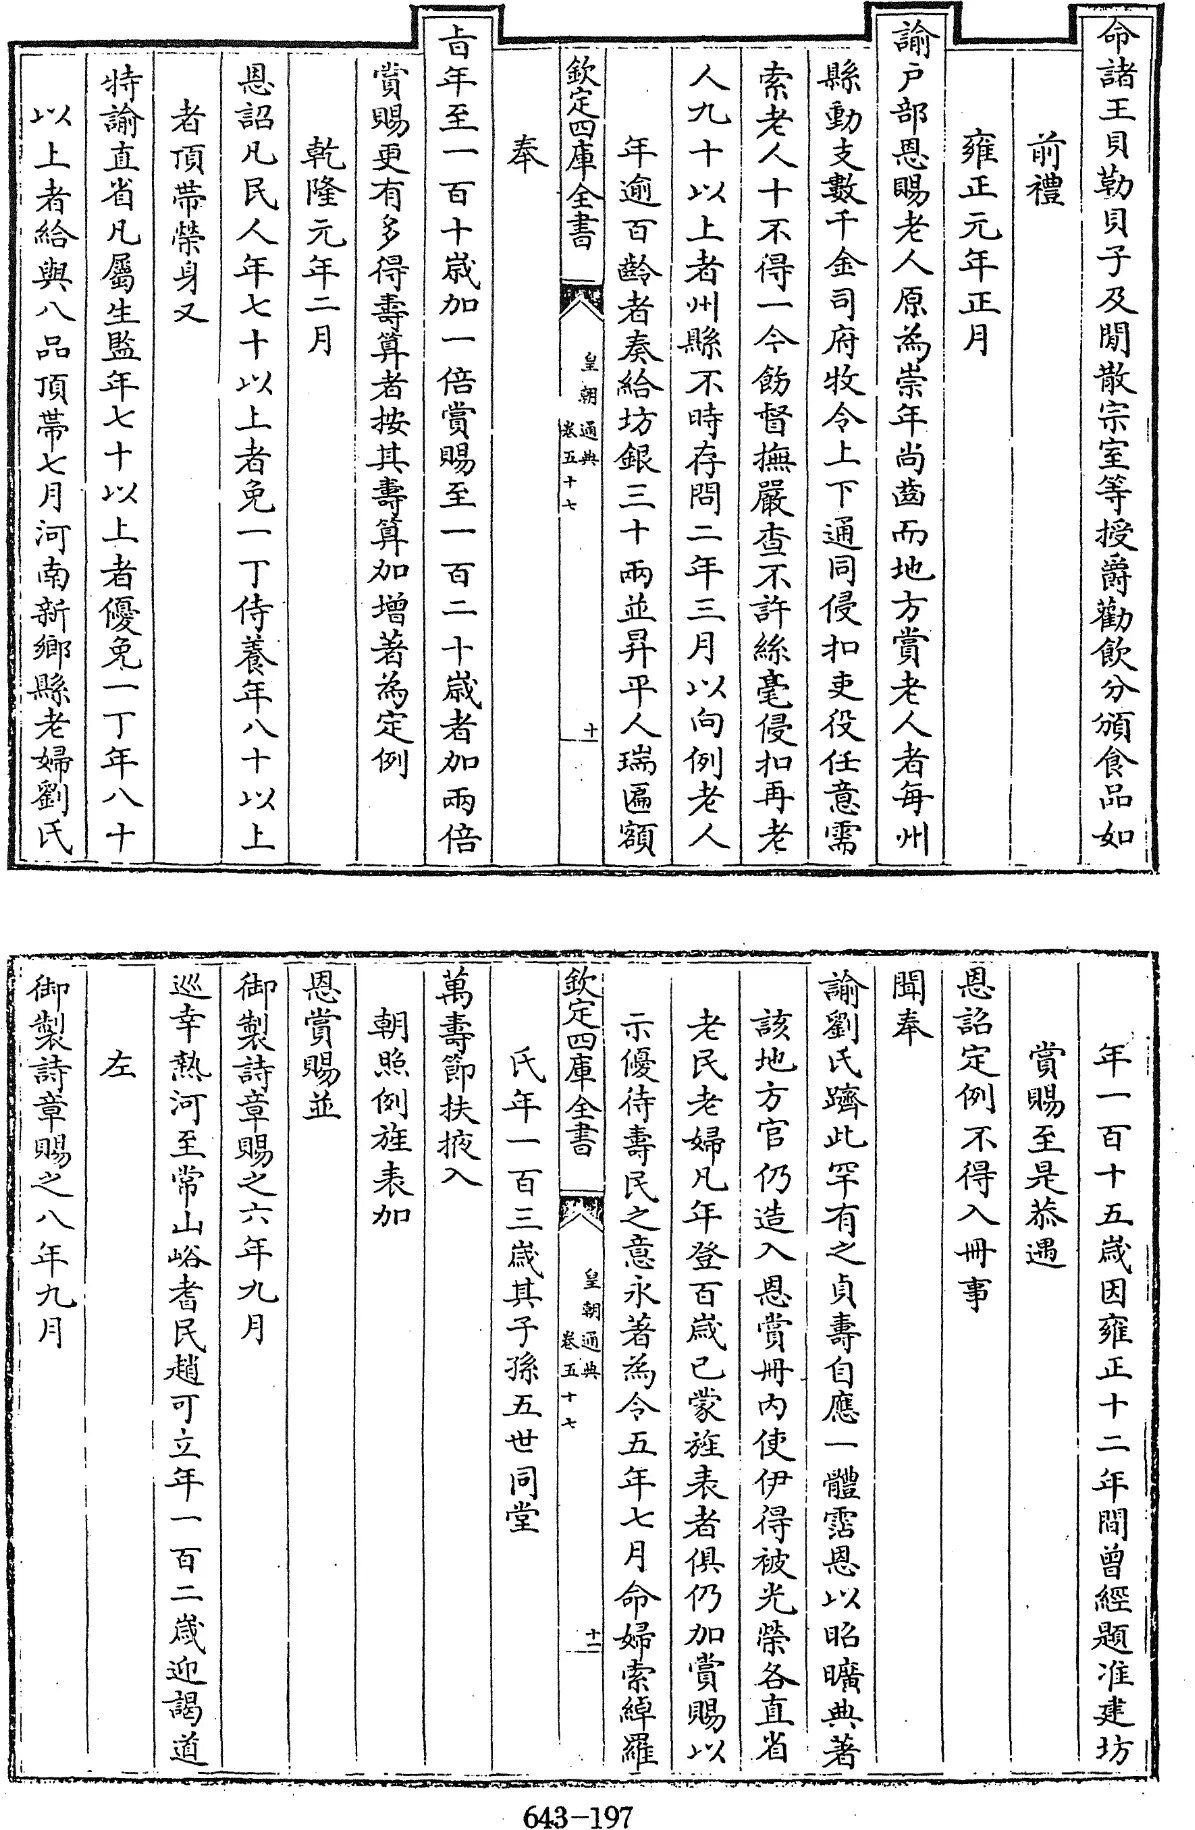 命諸王貝勒貝子及閒散宗室等授爵勸飲分頒食品如
前禮
雍正元年正月
諭户部恩賜老人原為崇年尚齒而地方賞老人者每州
縣動支數千金司府牧令上下通同侵扣吏役任意需
索老人十不得一今飭督撫嚴查不許絲毫侵扣再老
人九十以上者州縣不時存問二年三月以向例老人
年逾百齡者奏給坊銀三十兩並昇平人瑞匾額
欽定四庫全書
皇朝通典
卷五十七
十
奉
㫖年至一百十歲加一倍賞賜至一百二十歲者加兩倍
賞賜更有多得壽算者按其壽算加增著為定例
乾隆元年二月
恩詔凡民人年七十以上者免一丁侍養年八十以上
者頂帶榮身又
特諭直省凡屬生監年七十以上者優免一丁年八十
以上者給與八品頂帶七月河南新鄉縣老婦劉氏
年一百十五歲因雍正十二年間曾經題准建坊
賞賜至是恭遇
恩詔定例不得入冊事
聞奉
諭劉氏躋此罕有之貞壽自應一體霑恩以昭曠典著
該地方官仍造入恩賞冊内使伊得被光榮各直省
老民老婦凡年登百歲已蒙旌表者俱仍加賞賜以
示優待壽民之意永著為令五年七月命婦索綽羅
欽定四庫全書
皇朝通典
卷五十七
十一
氏年一百三歲其子孫五世同堂
萬壽節扶掖入
朝照例旌表加
恩賞賜並
御製詩章賜之六年九月
巡幸熱河至常山峪耆民趙可立年一百二歲迎謁道
左
御製詩章賜之八年九月
643-197